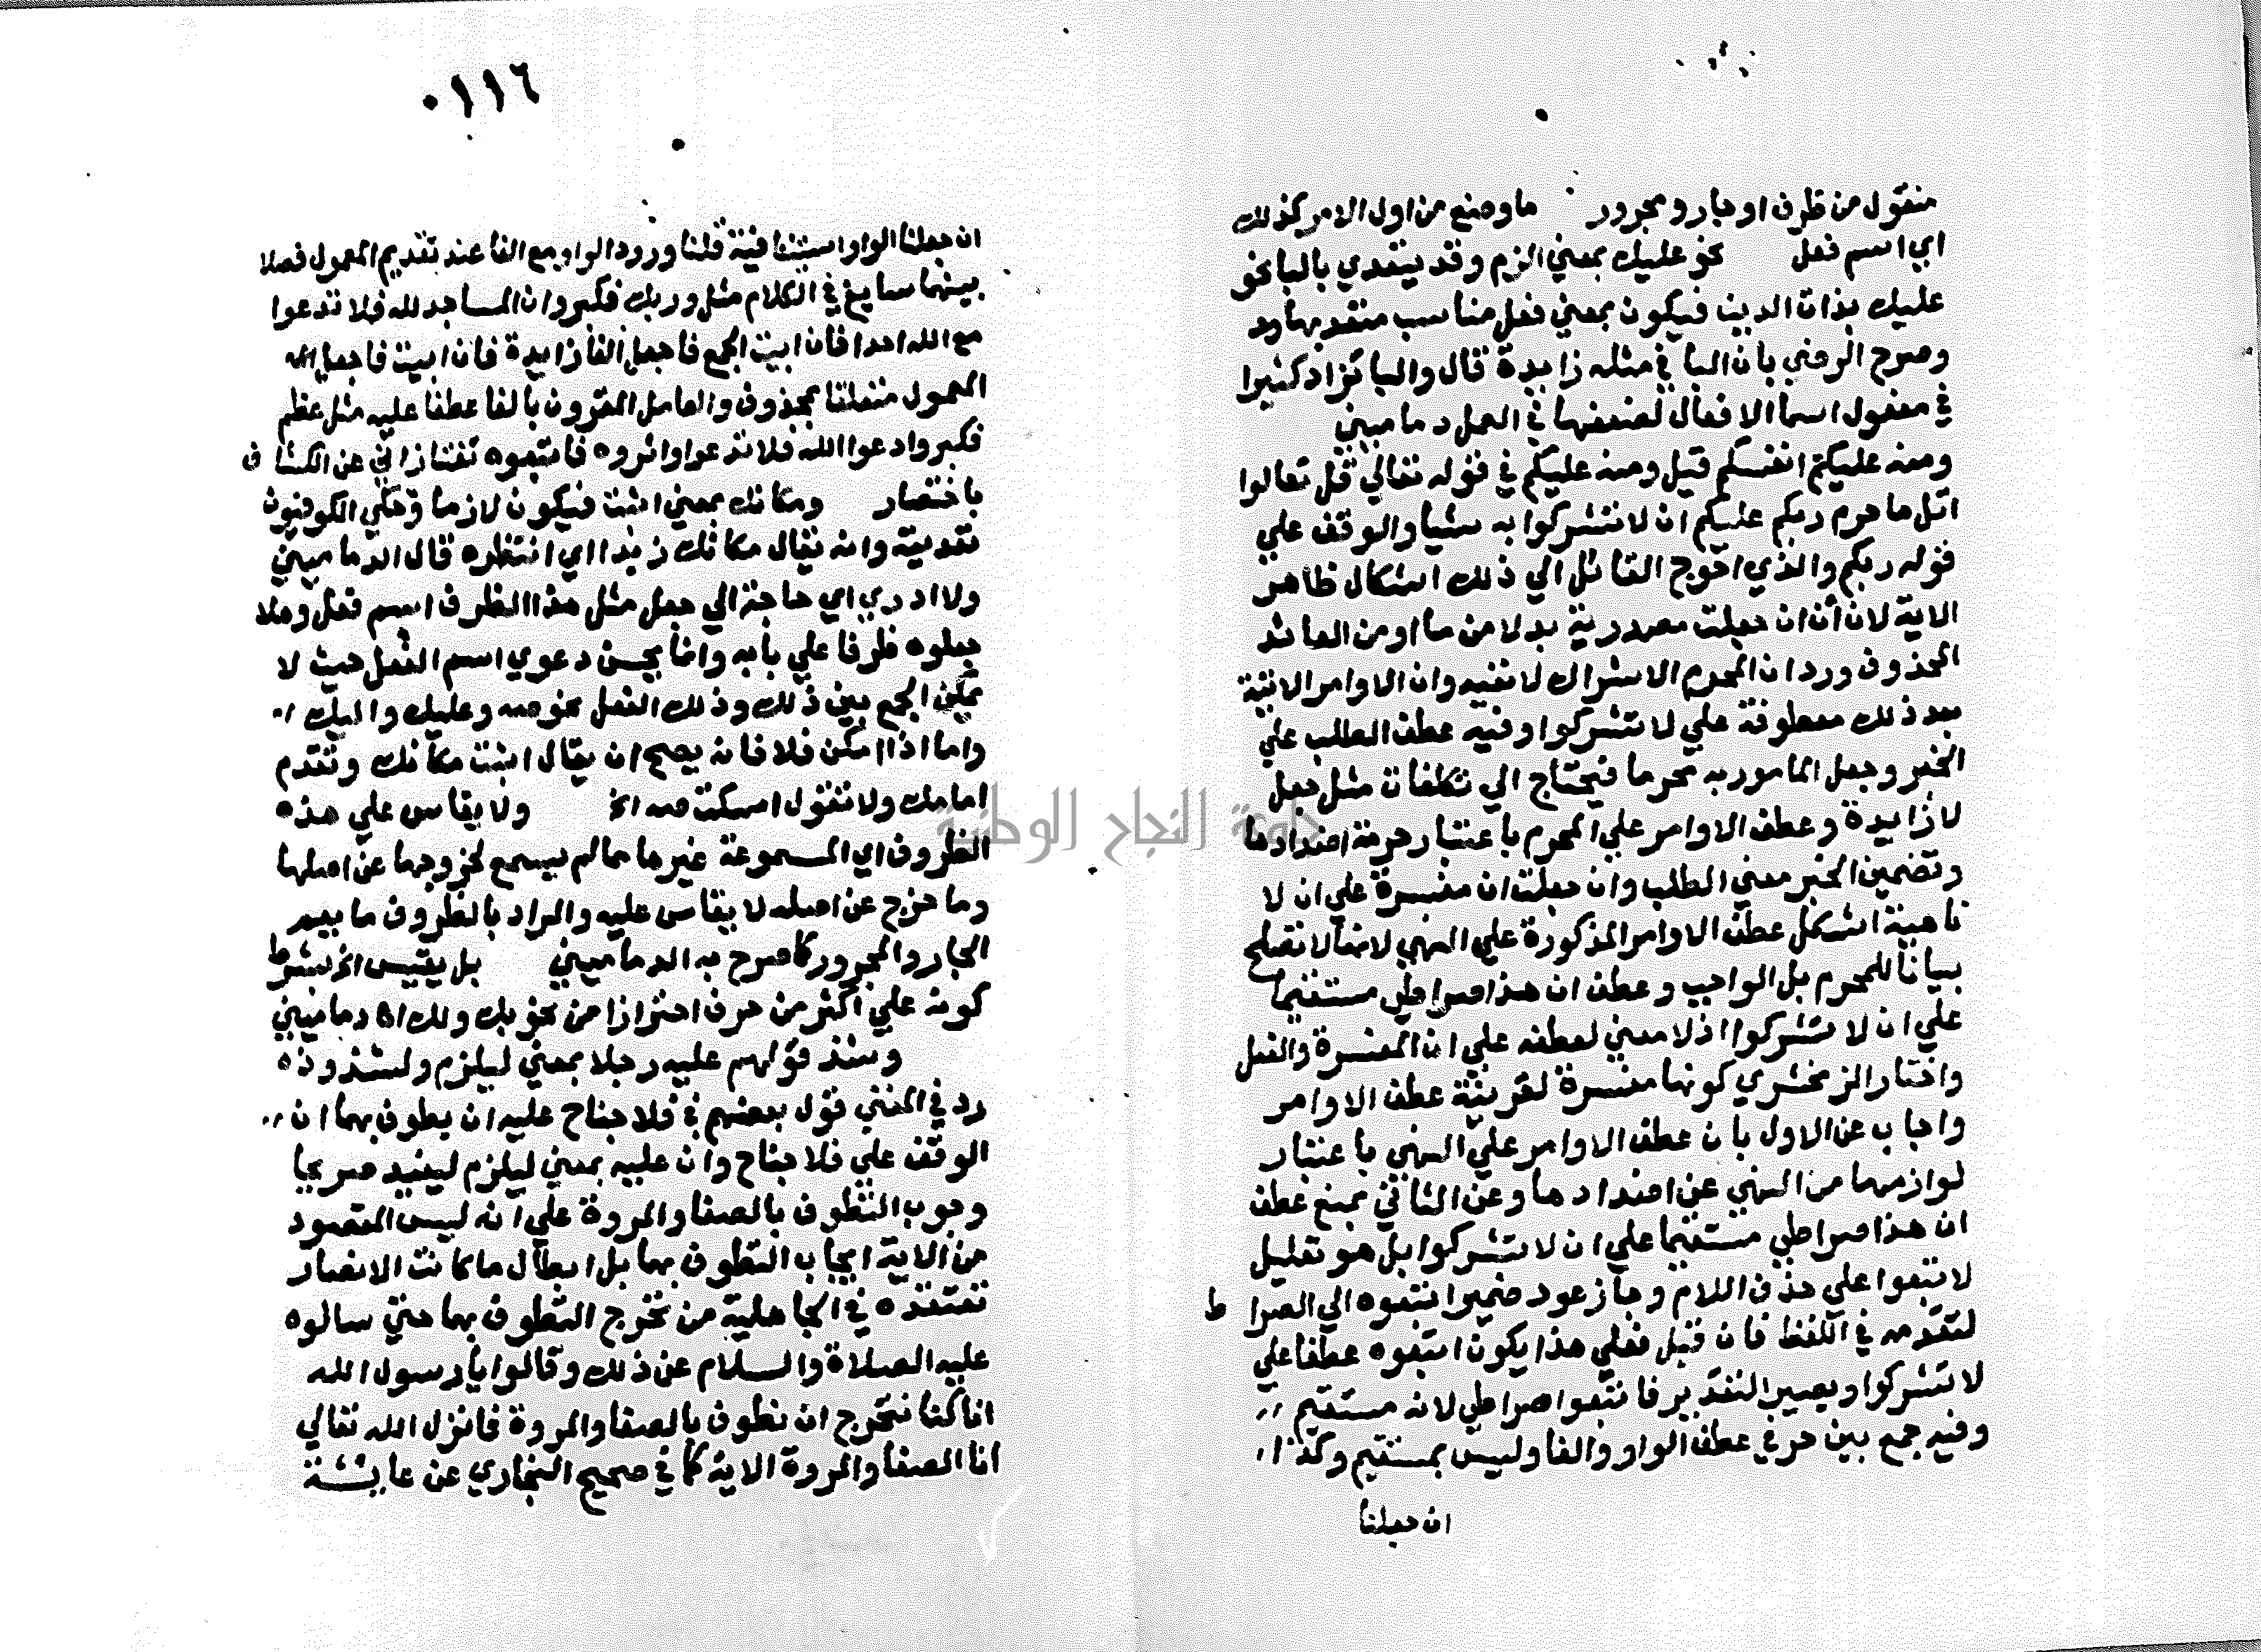 منقول من ظرف او جار و مجرور ما وضع من اول الامر كذلك
اي اسم فعل نحو عليك بمعني الزم وقد يتعدي بالبا نحو
عليك بذات الدين فيكون بمعني فعل مناسب متعد بها
وصرح الرضي بان البا في مثله زايدة قال والبا تزاد كثيرا
في مفعول اسما الافعال لضعفها في العمل دماميني
ومنه عليكم انفسكم قيل ومنه عليكم في قوله تعالي قل تعالوا
اتل ما حرم ربكم عليكم ان لا تشركوا به شيا والوقف علي
قوله ربكم والذي احوج القائل الي ذلك اشكال ظاهر
الاية لان أن ان جعلت مصدرية بدلا من ما او من العائد
المحذوف ورد ان المحرم الاشراك لا نفيه وان الاوامر الاتية
بعد ذلك معطوفة علي لا تشركوا وفيه عطف الطلب علي
الخبر وجعل المامور به محرما فيحتاج الي تكلفات مثل جعل
لا زايدة وعطف الاوامر علي المحرم باعتبار حرمة اضدادها
وتضمين الخبر معني الطلب وان جعلت ان مفسرة علي ان لا
ناهية اشكل عطف الاوامر المذكورة علي النهي لانها لا تصلح
بيانا للمحرم بل الواجب وعطف ان هذا صراطي مستقيما
علي ان لا تشركوا اذ لا معني لعطفه علي ان المفسرة والفعل
واختار الزمخشري كونها مفسرة لقرينة عطف الاوامر
واجاب عن الاول بان عطف الاوامر علي النهي باعتبار
لوازمها من النهي عن اضدادها وعن الثاني بمنع عطف
ان هذا صراطي مستقيما علي ان لا تشركوا بل هو تعليل
لاتبعوا علي حذف اللام وجاز عود ضمير اتبعوه الي الصراط
لتقدمه في اللفظ فان قيل فعلي هذا يكون اتبعوه عطفا علي
لا تشركوا ويصير التقدير فاتبعوا صراطي لانه مستقيم
وفيه جمع بين حرفي عطف الواو والفا وليس بمستقيم وكذا
ان جعلنا
٠١١٦
ان جعلنا الواو استينافية قلنا ورود الواو مع الفا عند تقديم المعمول فصلا
بينهما سايغ في الكلام مثل وربك فكبر وان المساجد لله فلا تدعوا
مع الله احدا فان ابيت الجمع فاجعل الفا زايدة فان ابيت فاجعل
المعمول متعلقا بمحذوف والعامل المقرون بالفا عطفا عليه مثل عظم
فكبر وادعوا الله فلا تدعوا واثروه فاتبعوه تفتازاني عن الكشاف
باختصار ومكانك بمعني اثبت فيكون لازما وحكي الكوفيون
تعديته وانه يقال مكانك زيدا اي انتظره قال الدماميني
ولا ادري اي حاجة الي جعل مثل هذا الظرف اسم فعل وهلا
جعلوه ظرفا علي بابه وانما يحسن دعوي اسم الفعل حيث لا
يمكن الجمع بين ذلك وذلك الفعل نحو صه وعليك واليك
واما اذا امكن فلا فانه يصح ان يقال اثبت مكانك وتقدم
امامك ولا تقول اسكت صه الخ ولا يقاس علي هذه
الظروف اي المسموعة غيرها مما لم يسمع لخروجها عن اصلها
وما خرج عن اصله لا يقاس عليه والمراد بالظروف ما يعم
الجار والمجرور كما صرح به الدماميني بل يقيس الخ بشرط
كونه علي اكثر من حرف احترازا من نحو بك ولك اه دماميني
وشذ قولهم عليه رجلا بمعني ليلزم ولشذوذه
رد في المغني قول بعضهم في فلا جناح عليه ان يطوف بهما ان
الوقف علي فلا جناح وان عليه بمعني ليلزم ليفيد صريحا
وجوب التطوف بالصفا والمروة علي انه ليس المقصود
من الاية ايجاب التطوف بهما بل ابطال ما كانت الانصار
تعتقده في الجاهلية من تحرج التطوف بهما حتي سالوه
عليه الصلاة والسلام عن ذلك وقالوا يا رسول الله
انا كنا نتحرج ان نطوف بالصفا والمروة فانزل الله تعالي
ان الصفا والمروة الاية كما في صحيح البخاري عن عايشة
جامعة النجاح الوطنية